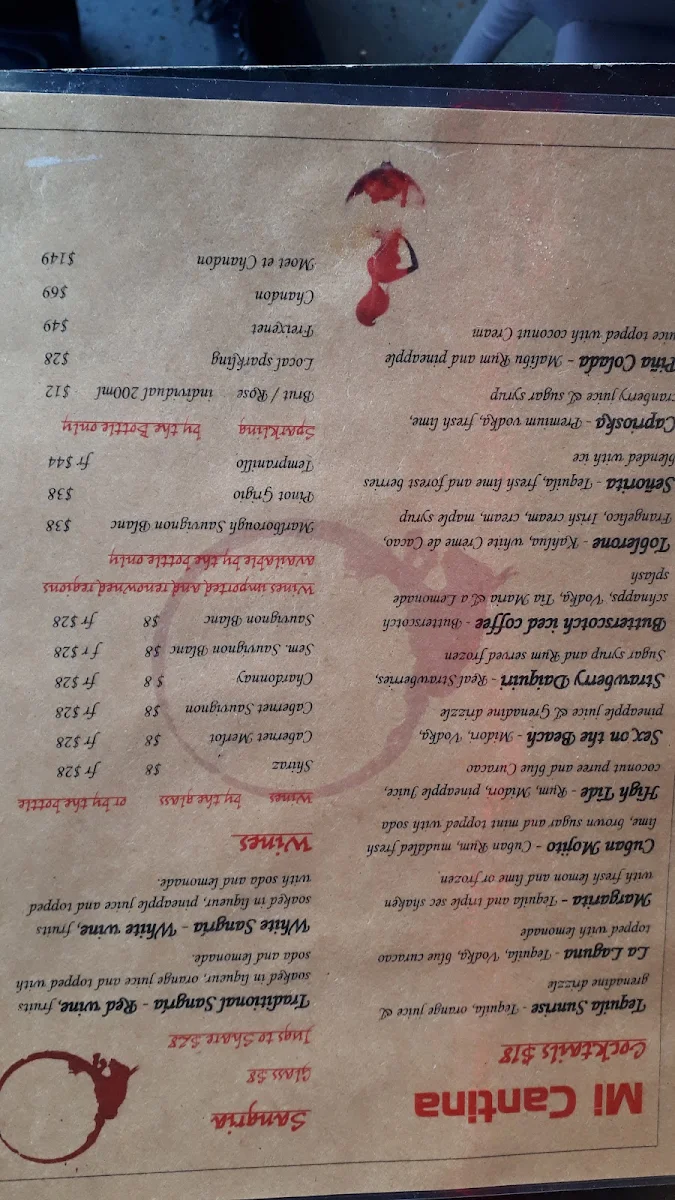 Mi Cantina
Cocktails $18
Tequila Sunrise - Tequila, orange juice &
grenadine drizzle
La Laguna - Tequila, Vodka, blue curacao
topped with lemonade
Margarita - Tequila and triple sec shaken
with fresh lemon and lime or frozen.
Cuban Mojito - Cuban Rum, muddled fresh
lime, brown sugar and mint topped with soda
High Tide - Rum, Midori, pineapple Juice,
coconut puree and blue Curacao
Sex on the Beach - Midori, Vodka,
pineapple juice & Grenadine drizzle
Strawberry Daiquiri - Real Strawberries,
Sugar syrup and Rum served frozen
Butterscotch iced coffee - Butterscotch
schnapps, Vodka, Tia Maria & a Lemonade
splash
Toblerone - Kahlua, white Crème de Cacao,
Frangelico, Irish cream, cream, maple syrup
Señorita - Tequila, fresh lime and forest berries
blended with ice
Caprioska - Premium vodka, fresh lime,
cranberry juice & sugar syrup
Piña Colada - Malibu Rum and pineapple
juice topped with coconut Cream
Sangria
Glass $8
Jugs to Share $28
Traditional Sangria - Red wine, fruits
soaked in liqueur, orange juice and topped with
soda and lemonade.
White Sangria - White wine, fruits
soaked in liqueur, pineapple juice and topped
with soda and lemonade.
Wines
Wines by the glass or by the bottle
Shiraz $8 fr $28
Cabernet Merlot $8 fr $28
Cabernet Sauvignon $8 fr $28
Chardonnay $ 8 fr $28
Sem. Sauvignon Blanc $8 fr $28
Sauvignon Blanc $8 fr $28
Wines imported and renowned regions
available by the bottle only
Marlborough Sauvignon Blanc $38
Pinot Grigio $38
Tempranillo fr $44
Sparkling by the Bottle only
Brut / Rose individual 200ml $12
Local sparkling $28
Freixenet $49
Chandon $69
Moet et Chandon $149